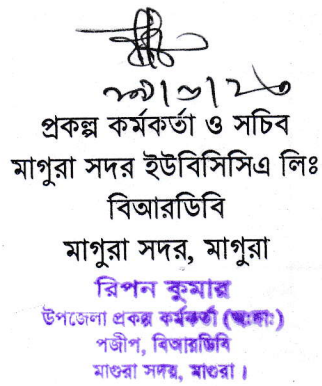 প্রকল্প কর্মকর্তা ও সচিব
মাগুরা সদর ইউবিসিসিএ লিঃ
বিআরডিবি
মাগুরা সদর, মাগুরা
রিপন কুমার
উপজেলা প্রকল্প কর্মকর্তা (অঃদাঃ)
পজীপ, বিআরডিবি
মাগুরা সদর, মাগুরা।